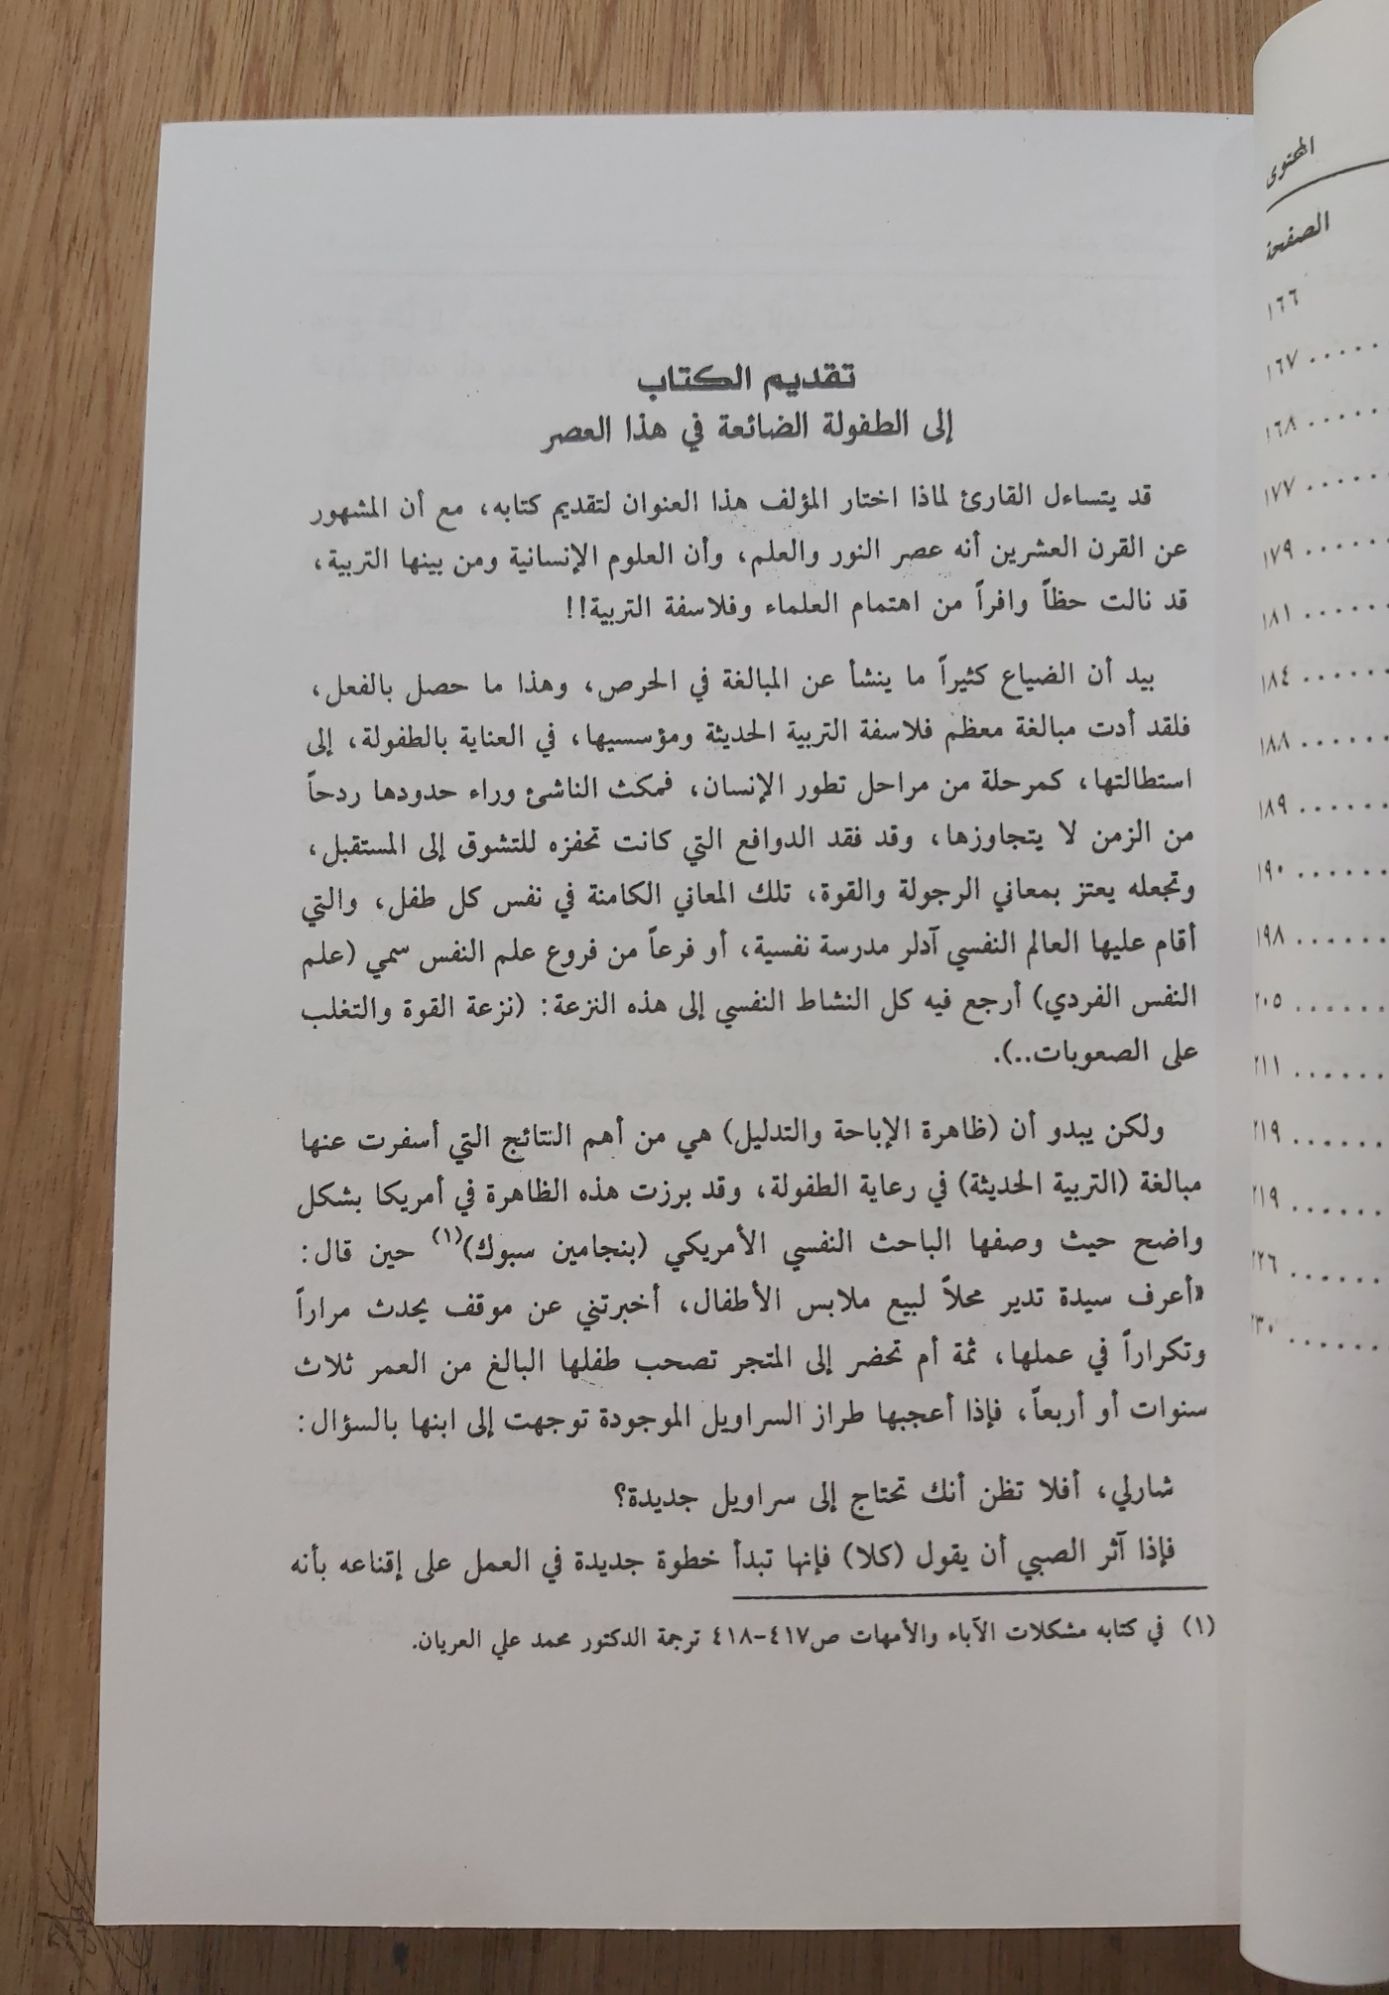 تقديم الكتاب
إلى الطفولة الضائعة في هذا العصر
قد يتساءل القارئ لماذا اختار المؤلف هذا العنوان لتقديم كتابه، مع أن المشهور
عن القرن العشرين أنه عصر النور والعلم، وأن العلوم الإنسانية ومن بينها التربية،
قد نالت حظاً وافراً من اهتمام العلماء وفلاسفة التربية!!
بيد أن الضياع كثيراً ما ينشأ عن المبالغة في الحرص، وهذا ما حصل بالفعل،
فلقد أدت مبالغة معظم فلاسفة التربية الحديثة ومؤسسيها، في العناية بالطفولة، إلى
استطالتها، كمرحلة من مراحل تطور الإنسان، فمكث الناشئ وراء حدودها ردحاً
من الزمن لا يتجاوزها، وقد فقد الدوافع التي كانت تحفزه للتشوق إلى المستقبل،
وتجعله يعتز بمعاني الرجولة والقوة، تلك المعاني الكامنة في نفس كل طفل، والتي
أقام عليها العالم النفسي آدلر مدرسة نفسية، أو فرعاً من فروع علم النفس سمي (علم
النفس الفردي) أرجع فيه كل النشاط النفسي إلى هذه النزعة: (نزعة القوة والتغلب
على الصعوبات..).
ولكن يبدو أن (ظاهرة الإباحة والتدليل) هي من أهم النتائج التي أسفرت عنها
مبالغة (التربية الحديثة) في رعاية الطفولة، وقد برزت هذه الظاهرة في أمريكا بشكل
واضح حيث وصفها الباحث النفسي الأمريكي (بنجامين سبوك)(١) حين قال:
«أعرف سيدة تدير محلاً لبيع ملابس الأطفال، أخبرتني عن موقف يحدث مراراً
وتكراراً في عملها، ثمة أم تحضر إلى المتجر تصحب طفلها البالغ من العمر ثلاث
سنوات أو أربعاً، فإذا أعجبها طراز السراويل الموجودة توجهت إلى ابنها بالسؤال:
شارلي، أفلا تظن أنك تحتاج إلى سراويل جديدة؟
فإذا آثر الصبي أن يقول (كلا) فإنها تبدأ خطوة جديدة في العمل على إقناعه بأنه
(١) في كتابه مشكلات الآباء والأمهات ص٤١٧-٤١٨ ترجمة الدكتور محمد علي العريان.
المحتوى
الصفحة
١٦٦
١٦٧ .....
١٦٨ .....
١٧٧ .....
١٧٩ ......
١٨١ ......
١٨٤ ......
١٨٨ ......
١٨٩ ......
١٩٠ ......
١٩٨ ......
٢٠٥ ......
٢١١ ......
٢١٩ ......
٢١٩ ......
٢٢٦ ......
٢٣٠ ......